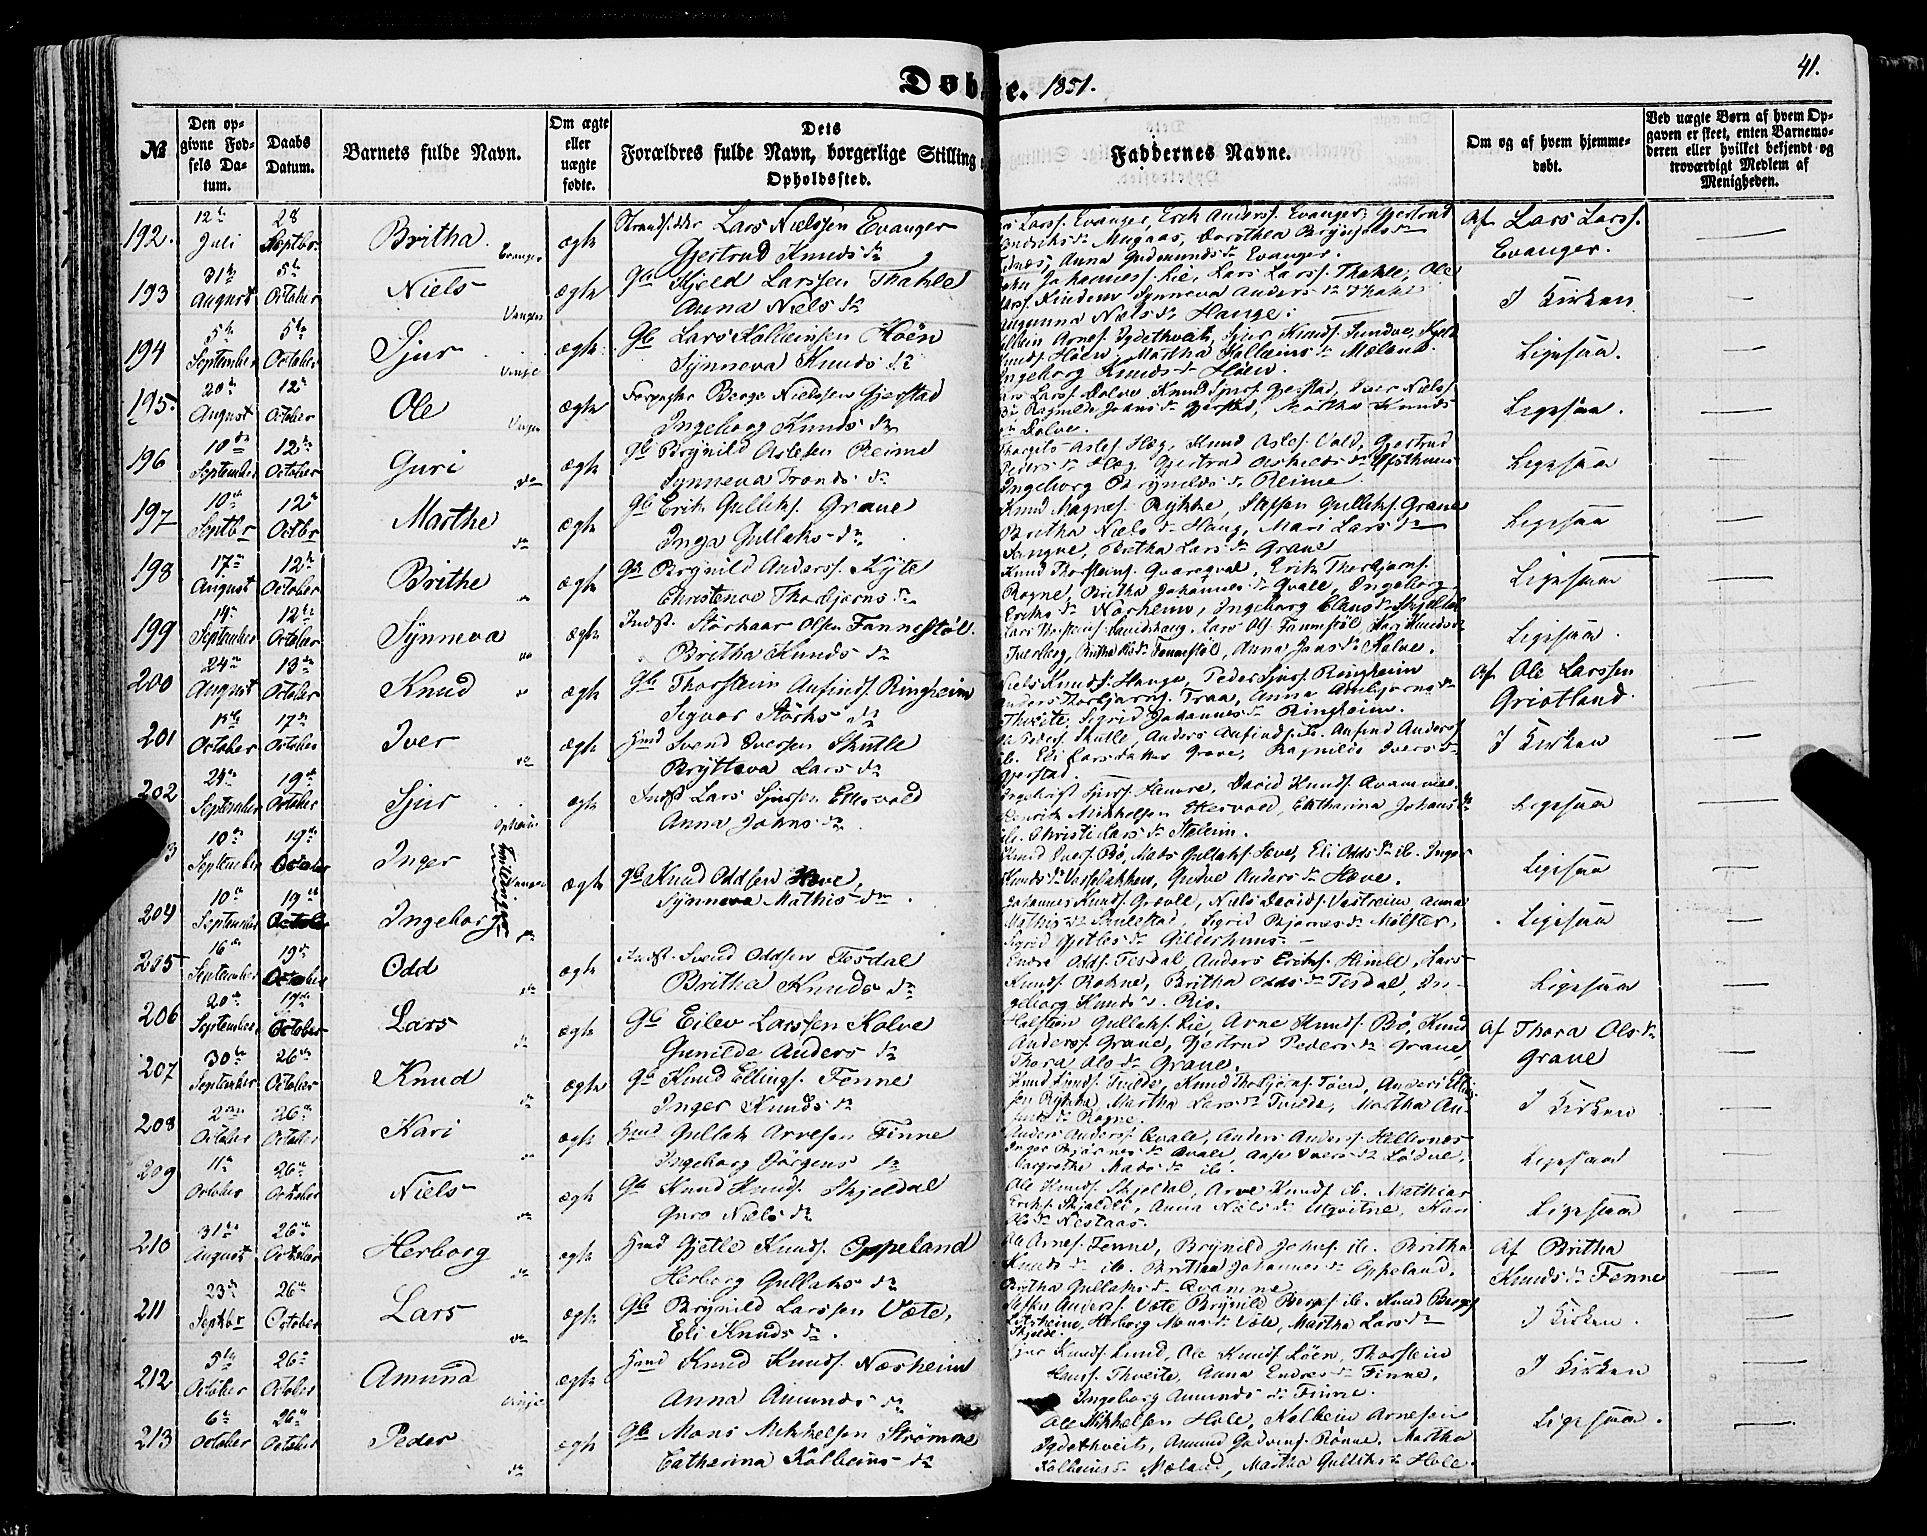 41.
Døbte. 1851.
№
Den opgivne Fødsels Datum.
Daabs Datum.
Barnets fulde Navn.
Om ægte eller uægte fødte.
Dets Forældres fulde Navn, borgerlige Stilling
Opholdssted.
Faddernes Navne.
Om og af hvem hjemmedøbt.
Ved uægte Børn af hvem Opgaven er skeet, enten Barnemoderen eller hvilket bekjendt og troværdigt Medlem af Menigheden.
192. 12te Juli 28 Septbr. Britha. Evanger ægte Lars Nielssen Evanger
Gjertrud Knudsdr
Lars. Evanger, Erik Anders. Evanger, Gjertrud
Mugaas, Dorothea Brynjulsdr
Anna Gudmundsdr Evanger.
Af Lars Lars. Evanger.
193 31te August 5te October Niels Vangen ægte Gb Kjeld Larssen Thahle
Anna Nielsdr
Johannes. Lie, Lars Lars. Thahle, Ole
Synneva Andersdr Thahle
Nielsdr Hauge.
I Kirken
194 5te September 5te October Sjur Vinje ægte Gb Lars Kolbeinsen Høen
Synneva Knudsdr
Arnes. Sjur Knuds. Tundve,
Knuds. Høen, Martha Kolbeinsdr Mæland.
Ingeborg Knudsdr Høen.
Ligesaa.
195. 20de August 12te October Ole Vangen ægte Forpagter Berge Nielssen Gjerstad
Ingeborg Knudsdr
Lars. Dolve, Knud Sjurs. Gjerstad, Iver Niels.
Ragnilde Johnsdr Gjerstad, Martha Knuds
dr Dolve.
Ligesaa.
196 10de September 12te October Guri do ægte Gb Brynild Aslesen Reime
Synneva Trondsdr
Asles. Hæg, Knud Asles. Vold, Gjertrud
Pedersdr Hæg, Gjertrud
Ingeborg Brynildsdr Reime.
Ligesaa
197 10de Septbr 12te Octbr Marthe do ægte Gb Erik Gulleks. Graue
Inga Gullaksdr
Knud Magnes. Rykke, Steffen Gulleks. Graue
Britha Nielsdr Haug, Mari Larsdr
Britha Larsdr Graue
Ligesaa
198 17de August 12te October Brithe ægte Gb Brynild Anders. Kyte
Christence Thorbjørnsdr
Knud Thorsteins. Erik Thorbjørns.
Rogne, Britha Johannesdr Qvale, Ingeborg
Eriksdr Norheim, Ingeborg Clausdr
Ligesaa
199 14de September 12te October Synneva do ægte Indst. Størkaar Olsen Tannestøl.
Britha Knudsdr
Lars Ols. Tannestøl, Kari Knudsdr
Anna Jonsdr Kolve.
Ligesaa.
200 24de August 13de October Knud ægte Gb Thorstein Anfinds. Ringheim
Sigvor Størksdr
Niels Knuds. Hauge, Peder Sjurs. Ringheim
Anders Thorbjørns. Traa, Anna Arnbjørnsdr
Thveite, Sigrid Johannesdr Ringheim.
Af Ole Larssen Griotland.
201 October 17de October Iver do ægte Hmd Svend Iverssen Skutle
Brytteva Larsdr
Peders. Skutle, Anders Anfinds. ib. Anfind Anders.
ib. Eli Larsdatter Grove, Ragnilde Iversdr
Gjerstad
I Kirken
202 24de September 19de October Sjur Opheim ægte Indst Lars Sjurssen Ettesvold
Anna Johnsdr
Sjurs. Hemre, David Knuds.
Mikkelsen Ettesvold, Catharina Johansdr
ib. Christi Larsdr Staleim.
Ligesaa
3 10de September 19de October Inger Tvillinger Vangen ægte Gb Knud Oddsen Hove,
Synneva Mathisdr.
Knud Ivers. Bø, Mads Gullaks. Hove, Eli Oddsdr ib. Inger
Knudsdr Gudve Andersdr Hove.
Ligesaa
204 10de September 19de October Ingeborg do
Johannes Knuds. Grovle, Niels Davids. Vestreim, Anna
Mathisdr Sigrid Bjørnesdr Mølster,
Sigrid Gjetlesdr Gilderhuus
Ligesaa
205 16de September 19de October Odd do ægte Indst. Svend Oddsen Tesdal
Britha Knudsdr
Endre Odds. Tesdal, Anders Eriks. Himle, Lars
Knuds. Rokne, Britha Oddsdr Tesdal, In-
geborg Knudsdr. Rio.
Ligesaa
206 20de September 19de October Lars do ægte Gb Eilev Larssen Kolve
Gunilde Andersdr
Holstein Gullaks. Lie, Arne Knuds. Bø, Knud
Anders. Graue, Gjertrud Pedersdr Graue,
Thora Olsdr Graue.
Af Thora Olsdr Graue
207 30te September 26de October Knud do ægte Gb Knud Ellings. Fenne
Inger Knudsdr
Knud Knuds. Tvilde, Knud Thorbjørns. Anders
Rykke, Martha Larsdr Tvilde, Martha An-
dr Rogne.
I Kirken
208 2den October 26de October Kari do ægte Hmd Gullak Arnesen Finne
Ingeborg Jørgensdr
Anders Anders. Qvale, Anders Anders. Hellesnes
Inger Bjørnesdr Qvale, Aase Iversdr
Margrethe Madsdr ib.
Ligesaa
209 11te October 26de October Niels do ægte Gb Knud Knuds. Skjeldal
Guro Nielsdr
Ole Knuds. Skjeldal, Arne Knuds. ib. Mathias
Eriks. Anna Nielsdr Kari
Olsdr Nestaas.
Ligesaa
210 31te August 26de October Herborg do ægte Hmd Gjetle Knuds. Oppeland
Herborg Gullaksdr
Ole Arnes. Fenne, Brynild Johns. ib. Britha
Knudsdr ib. Britha Johannesdr Oppeland,
Britha Gullaksdr Qvamme
Af Britha Knudsdr Fenne
211 23de Septbr 26de October Lars do ægte Gb Brynild Larssen Væte,
Eli Knudsdr.
Steffen Anders. Væte, Brynild Berges. ib. Knud Berges.
Herborg Monsdr Væte, Martha Larsdr
Skjelde.
I Kirken.
212 5te October 26de October Amund Vinje ægte Hmd Knud Knuds. Næsheim
Anna Amundsdr
Knuds. Lund, Ole Knuds. Løen, Thorstein
Hans. Thveite, Anna Endresdr Finne,
Ingeborg Amundsdr Finne.
I Kirken
213 6te October 26de October Peder do ægte Gb Mons Mikkelsen Strømme
Catharina Kolbeinsdr
Ole Mikkelsen Hole, Kolbein Arnesen
Amund Rønne, Martha
Kolbeinsdr Mæland, Martha Gulleksdr Hole.
Ligesaa.